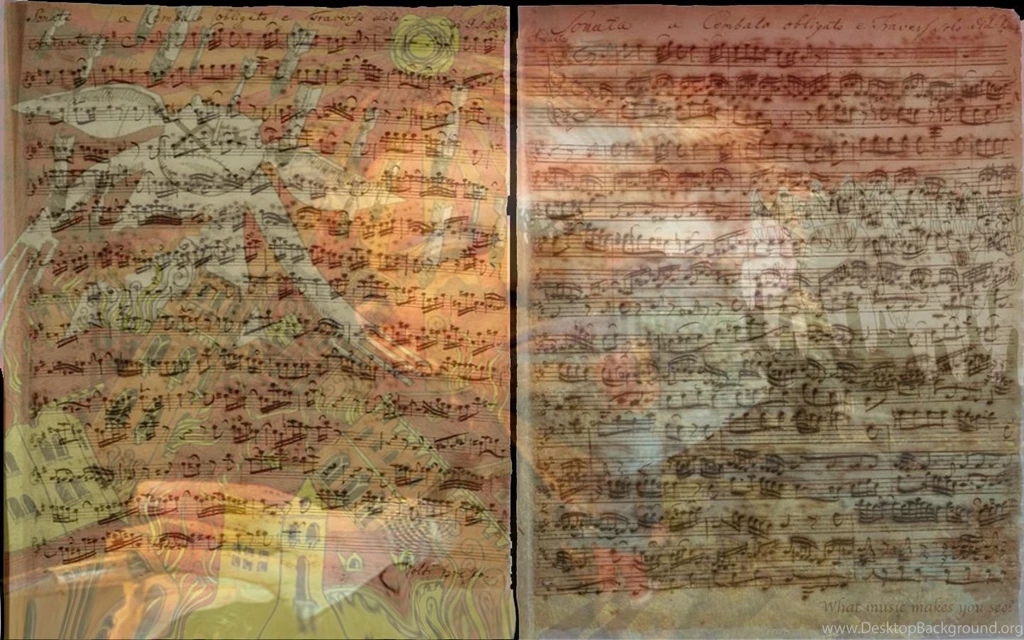 Sonata a Cembalo obligato e Traverso solo
Sonata a Cembalo obligato e Travers. solo
What music makes you see?
www.DesktopBackground.org